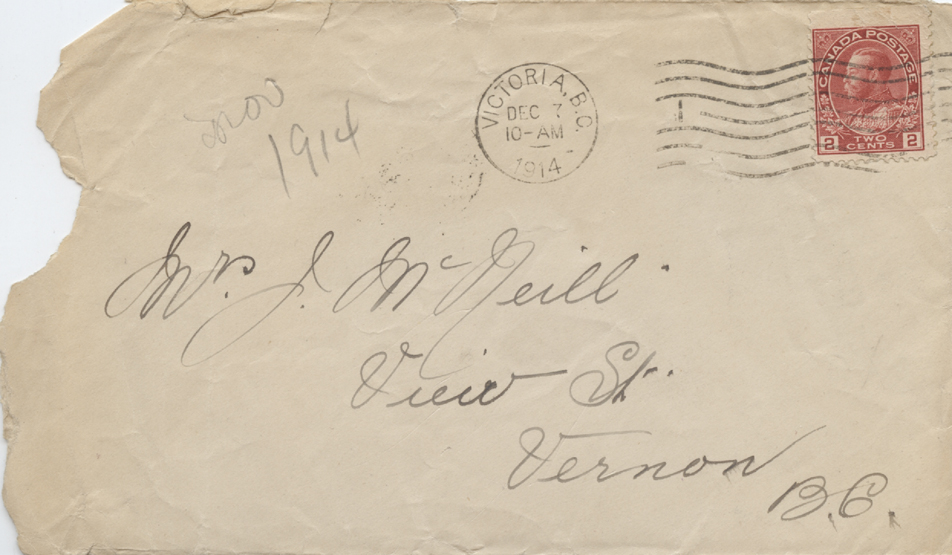 Nov
1914
VICTORIA, B.C.
DEC 7
10-AM
1914
CANADA POSTAGE
2 TWO CENTS 2
Mrs. J. McNeill
View St.
Vernon
B.C.